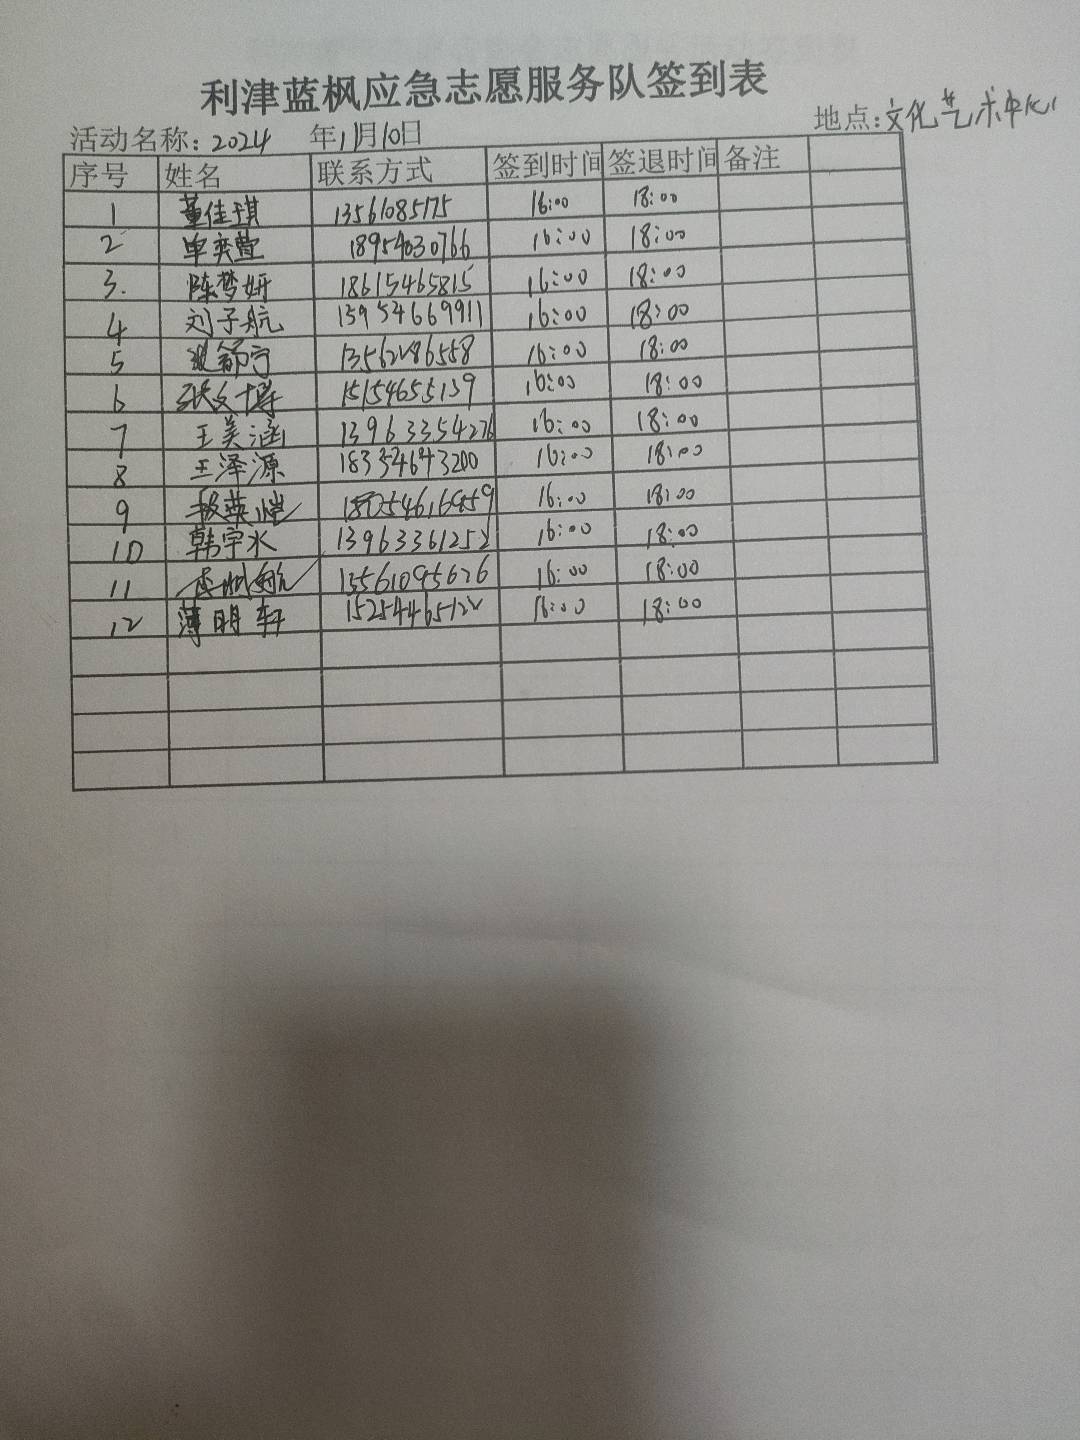 利津蓝枫应急志愿服务队签到表
活动名称：2024 年11月10日 地点：文化艺术中心
序号 姓名 联系方式 签到时间 签退时间 备注
1 董佳琪 13561085175 16:00 18:00
2 单奕萱 18954630766 16:00 18:00
3. 陈梦妍 18615465815 16:00 18:00
4 刘子航 13954669911 16:00 18:00
5 13562486558 16:00 18:00
6 张文博 15154655139 16:00 18:00
7 王美涵 13963354276 16:00 18:00
8 王泽源 16:00 18:00
9 16:00 18:00
10 韩宇水 13963361252 16:00 18:00
11 13561095626 16:00 18:00
12 薄明轩 15254465122 16:00 18:00